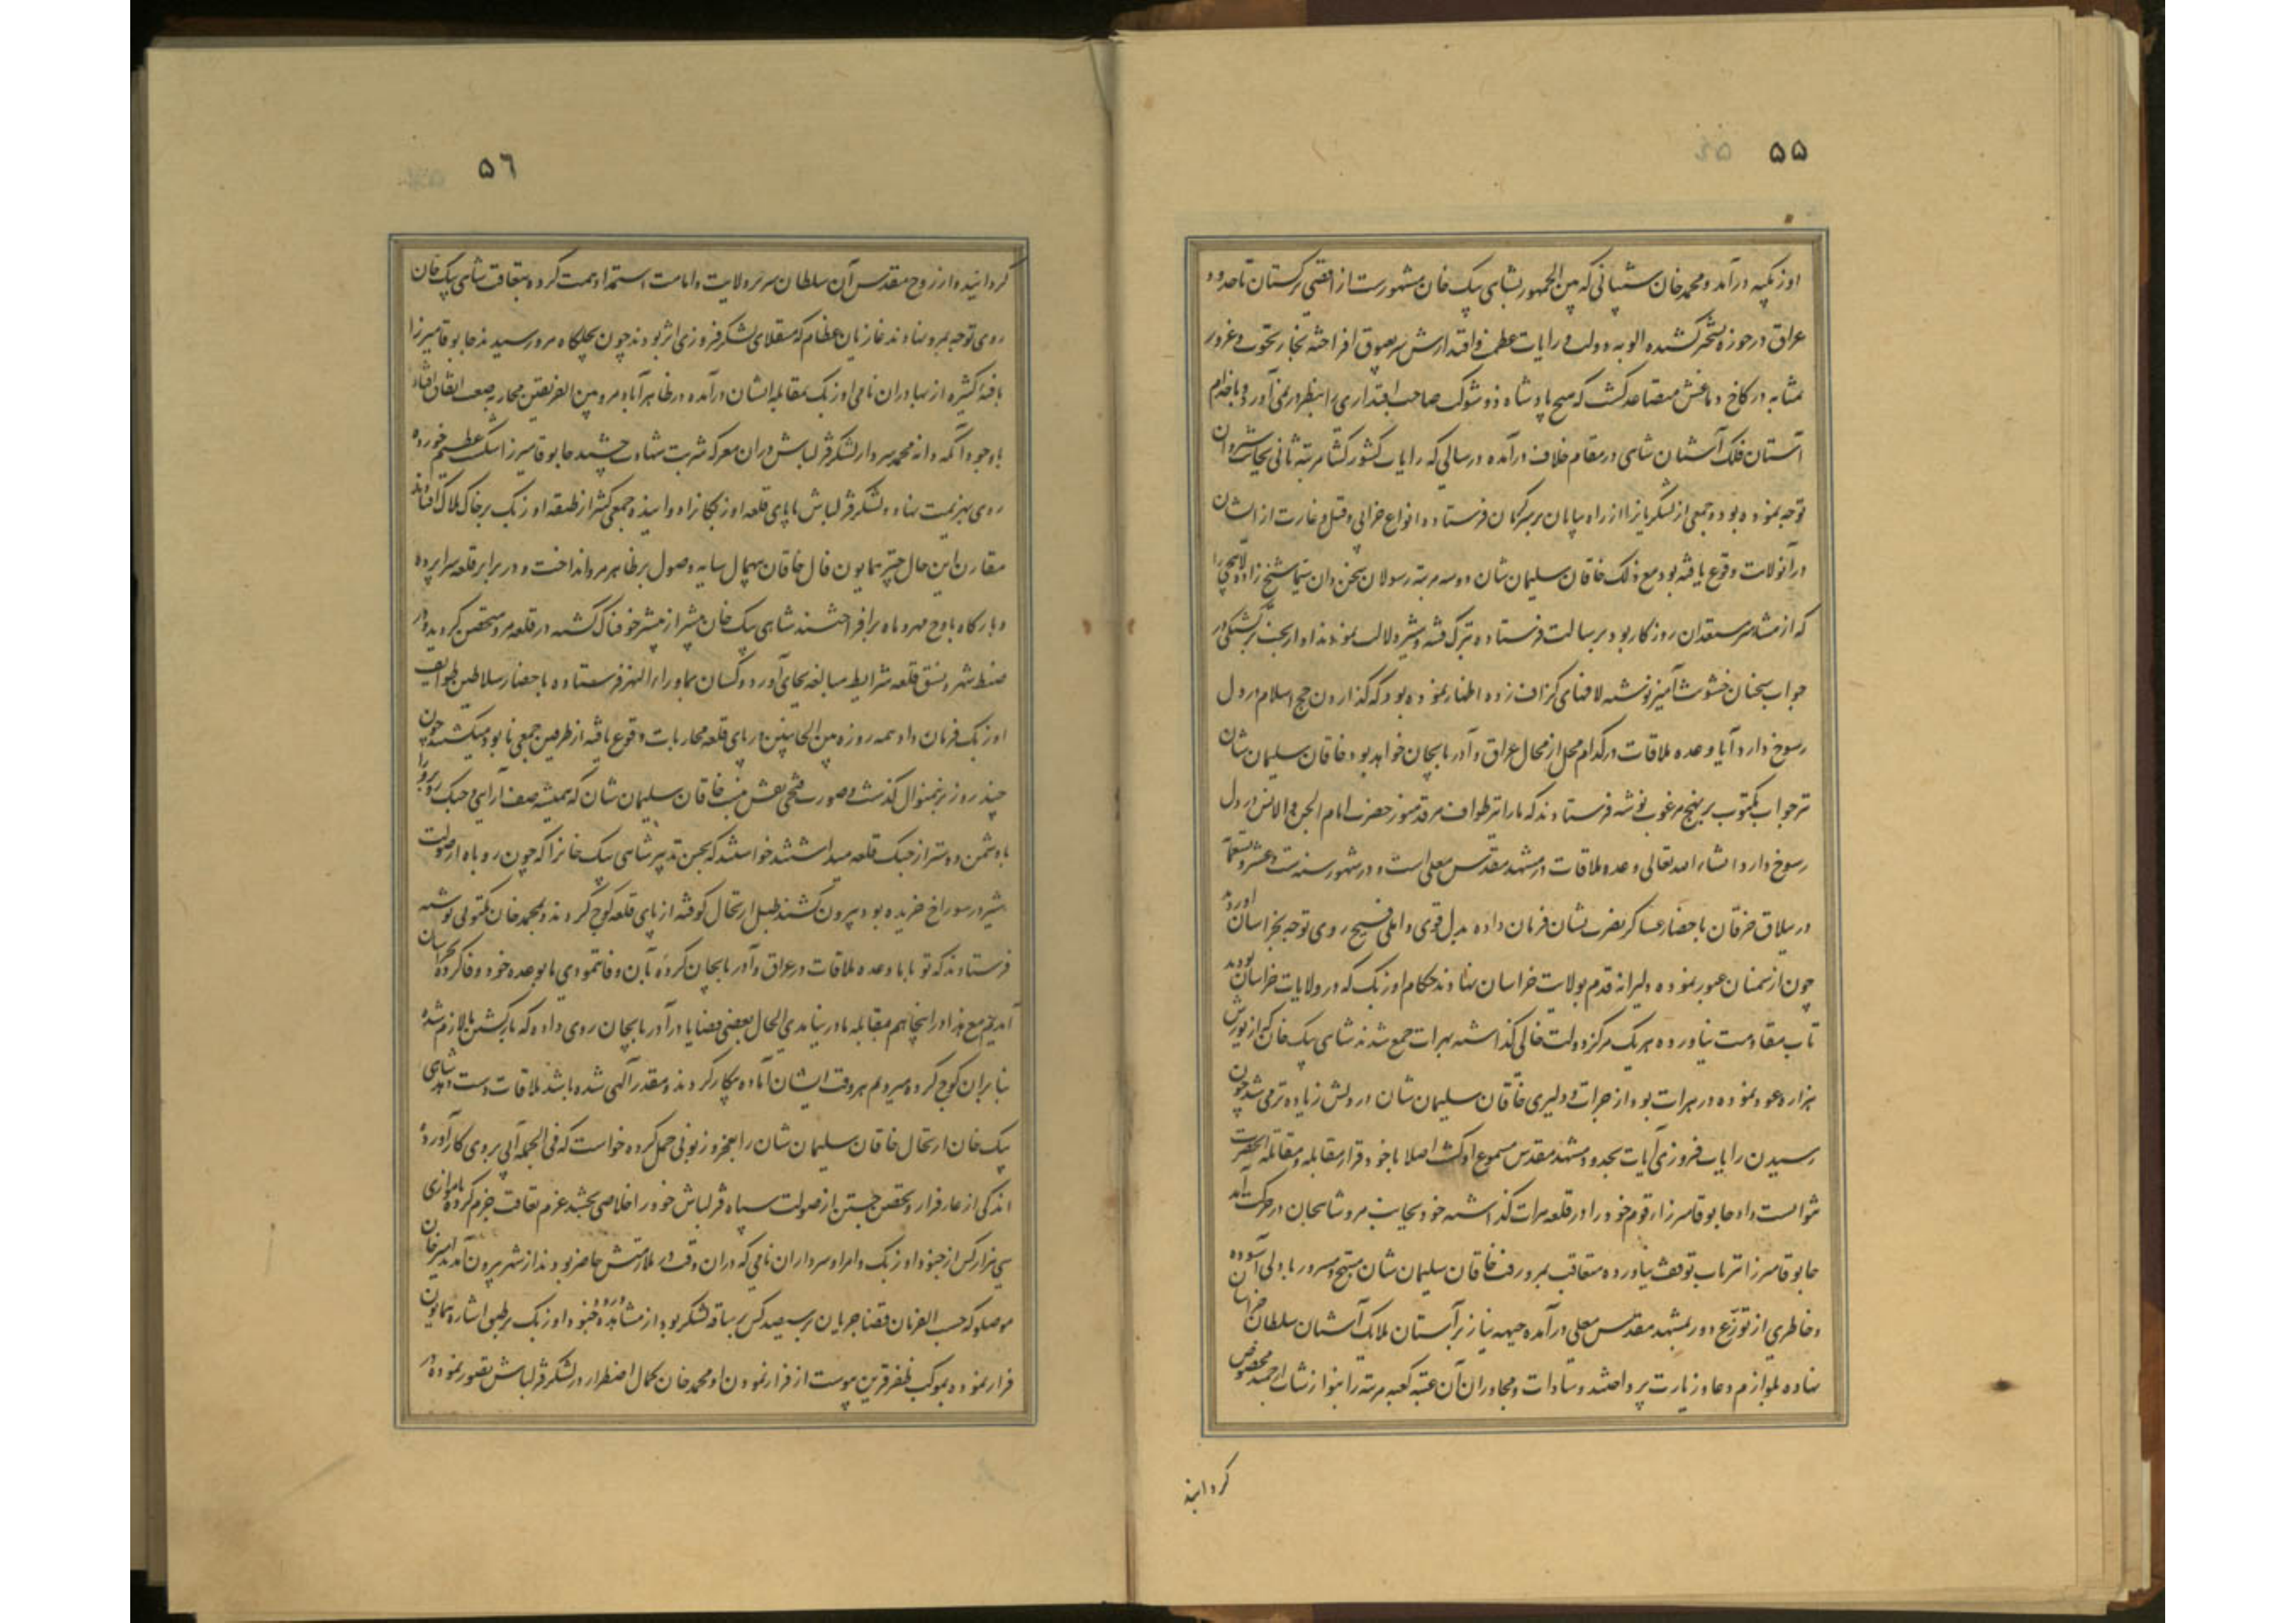 ۵۵
اوزبکیه درآمد و محمد خان شیبانی که بین الجمهور بشاهی بیک خان مشهورست از اقصی ترکستان تا حدود
عراق در حوزه تسخیر کشیده الویه دولت و رایات عظمت و اقتدارش بعیوق افراخته بخار نخوت و غرور
بمثابه در کاخ دماغش متصاعد گشت که هیچ پادشاه ذو شوکت صاحب اقتداری را بنظر در نمی آورد و با خدام
آستان فلک آشیان شاهی در مقام خلاف درآمده در سالی که رایات کشور کشا مرتبه ثانی بجانب شروان
توجه نموده بود جمعی از لشکریانرا از راه بیابان بر سر کرمان فرستاده انواع خرابی و قتل و غارت از ایشان
در آنولایت وقوع یافته بود مع ذلک خاقان سلیمان شان دو سه مرتبه رسولان سخن دان سیما شیخ زاده لاهیجی را
که از مشاهیر مستعدان روزگار بود برسالت فرستاده بترک فتنه و شر دلالت نمودند او از بخت برگشتگی در
جواب سخنان خشونت آمیز نوشته لافهای گزاف زده اظهار نموده بود که گذاردن حج اسلام در دل
رسوخ دارد آیا وعده ملاقات در کدام محل از محال عراق و آذربایجان خواهد بود خاقان سلیمان شان
نیز جواب مکتوب بر نهج مرغوب نوشته فرستادند که ما را نیز طواف مرقد منور حضرت امام الجن و الانس در دل
رسوخ دارد انشاء الله تعالی وعده ملاقات در مشهد مقدس معلی است و در شهور سنه ست و عشر و تسعمائه
در ییلاق خرقان باحضار عساکر نصرت نشان فرمان داده بدل قوی و املی فسیح روی توجه بخراسان آوردند
چون از سمنان عبور نموده دلیرانه قدم بولایت خراسان نهادند حکام اوزبک که در ولایات خراسان بودند
تاب مقاومت نیاورده هر یک مرکز دولت خالی گذاشته بهرات جمع شدند شاهی بیک خان که از یورش
هزاره عود نموده در هرات بود از جرات و دلیری خاقان سلیمان شان در دلش زیاده تر می شد چون
رسیدن رایات فروزی آیات بحدود مشهد مقدس مسموع او گشت اصلا با خود قرار مقابله و مقاتله آنحضرت
نتوانست داد جانوقا میرزا و قوم خود را در قلعه هرات گذاشته خود بجانب مرو شاهجان در حرکت آمد
جانوقا میرزا نیز تاب توقف نیاورده متعاقب بمرو رفت خاقان سلیمان شان مبتهج و مسرور با دلی آسوده
و خاطری از توزع دور بمشهد مقدس معلی درآمده جبهه نیاز بر آستان ملایک آشیان سلطان خراسان
نهاده بلوازم دعا و زیارت پرداختند و سادات و مجاوران آن عتبه کعبه مرتبه را بنوازشات ارجمند مخصوص
گردانیده
۵۶
گردانیده و از روح مقدس آن سلطان سریر ولایت و امامت استمداد همت کرده بتعاقب شاهی بیک خان
روی توجه بمرو نهادند غازیان عظام که منقلای لشکر فروزی اثر بودند چون بجلگاه مرو رسیدند جانوقا میرزا
با فئه کثیره از بهادران نامی اوزبک بمقابله ایشان درآمده در طاهرآباد مرو بین الفریقین محاربه صعب اتفاق افتاد
با وجود آنکه دانه محمد سردار لشکر قزلباش در ان معرکه شربت شهادت چشید جانوقا میرزا شکست عظیم خورده
روی بهزیمت نهاد و لشکر قزلباش تا پای قلعه اوزبکانرا دوانیده جمعی کثیر از طبقه اوزبک بر خاک هلاک افتادند
مقارن این حال چتر همایون فال خاقان بیهمال سایه وصول بر ظاهر مرو انداخت و در برابر قلعه سراپرده
و بارگاه باوج مهر و ماه برافراختند شاهی بیک خان بیشتر از پیشتر خوفناک گشته در قلعه مرو متحصن گردید و در
ضبط شهر و نسق قلعه شرایط مبالغه بجای آورد و کسان بماوراء النهر فرستاده باحضار سلاطین طوایف
اوزبک فرمان داد همه روزه بین الجانبین در پای قلعه محاربات وقوع یافته از طرفین جمعی نابود میگشتند چون
چند روز برینمنوال گذشت و صورت فتحی نقش نبست خاقان سلیمان شان که همیشه صف آرایی و جنگ روبرو را
با دشمن دوستر از جنگ قلعه میداشتند خواستند که بحسن تدبیر شاهی بیک خانرا که چون روباه از صولت
شیر در سوراخ خزیده بود بیرون کشند طبل ارتحال کوفته از پای قلعه کوچ کردند و بمحمد خان مکتوبی نوشته
فرستادند که تو با ما وعده ملاقات در عراق و آذربایجان کرده بآن وفا ننمودی ما بوعده خود وفا کرده بخراسان
آمدیم مع هذا در اینجا هم بمقابله ما در نیامدی الحال بعضی قضایا در آذربایجان روی داده که بازگشتن ما لازم شده
بنا بران کوچ کرده میرویم هر وقت ایشان آماده پیکار گردند و مقدر الهی شده باشد ملاقات دست دهد شاهی
بیک خان ارتحال خاقان سلیمان شان را بعجز و زبونی حمل کرده خواست که فی الجمله آبی بروی کار آورده
اندکی از عار فرار و تحصن جستن از صولت سپاه قزلباش خود را خلاصی بخشد عزم تعاقب جزم کرده با موازی
سی هزار کس از جنود اوزبک و امرا و سرداران نامی که در ان وقت در ملازمتش حاضر بودند از شهر بیرون آمد امیر خان
موصلو که حسب الفرمان قضا جریان با سیصد کس بر ساقه لشکر بود از مشاهده ورود جنود اوزبک بر طبق اشاره همایون
فرار نموده بموکب ظفر قرین پیوست از فرار نمودن او محمد خان کمال اضطرار در لشکر قزلباش تصور نموده در